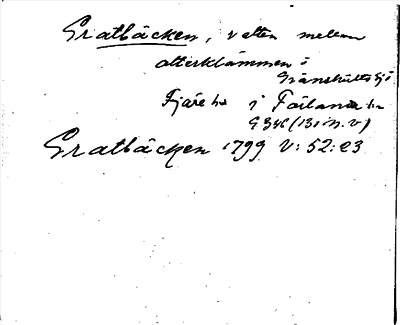 Gratbäcken, vatten mellan
atterklämmen i
Gränshults sj
Fjäre hd i Förlanda sn
G 346 (13 i N. V)
Gratbäcken 1799 V: 52: 23